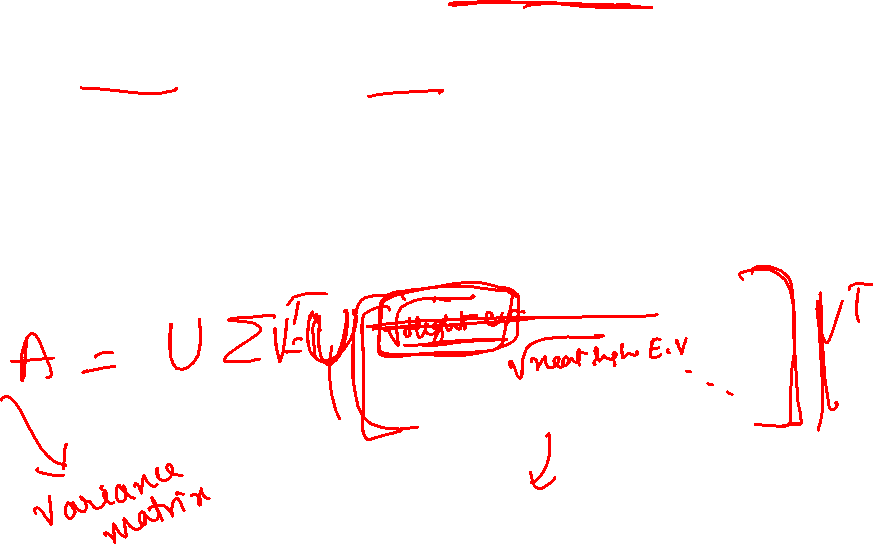 A = U Σ V^T = U [ √highest E.V
√next high E.V ... ] V^T
Variance
matrix